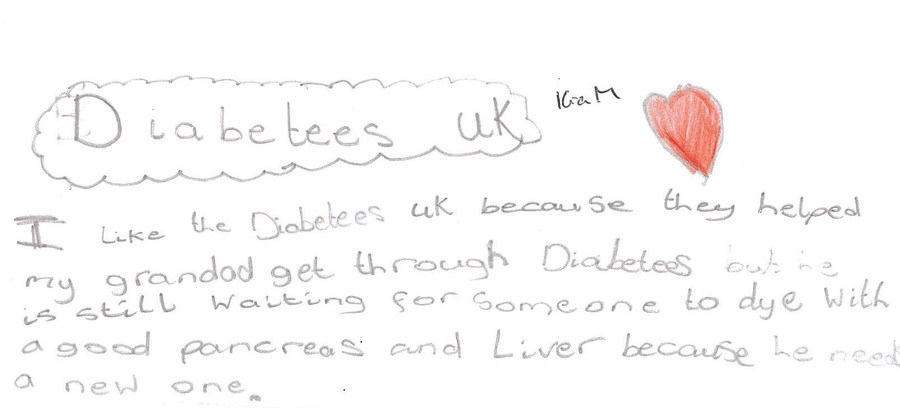 Diabetees UK
I Like the Diabetees UK because they helped
my grandad get through Diabetees but he
is still waiting for someone to dye with
a good pancreas and Liver because he need
a new one.